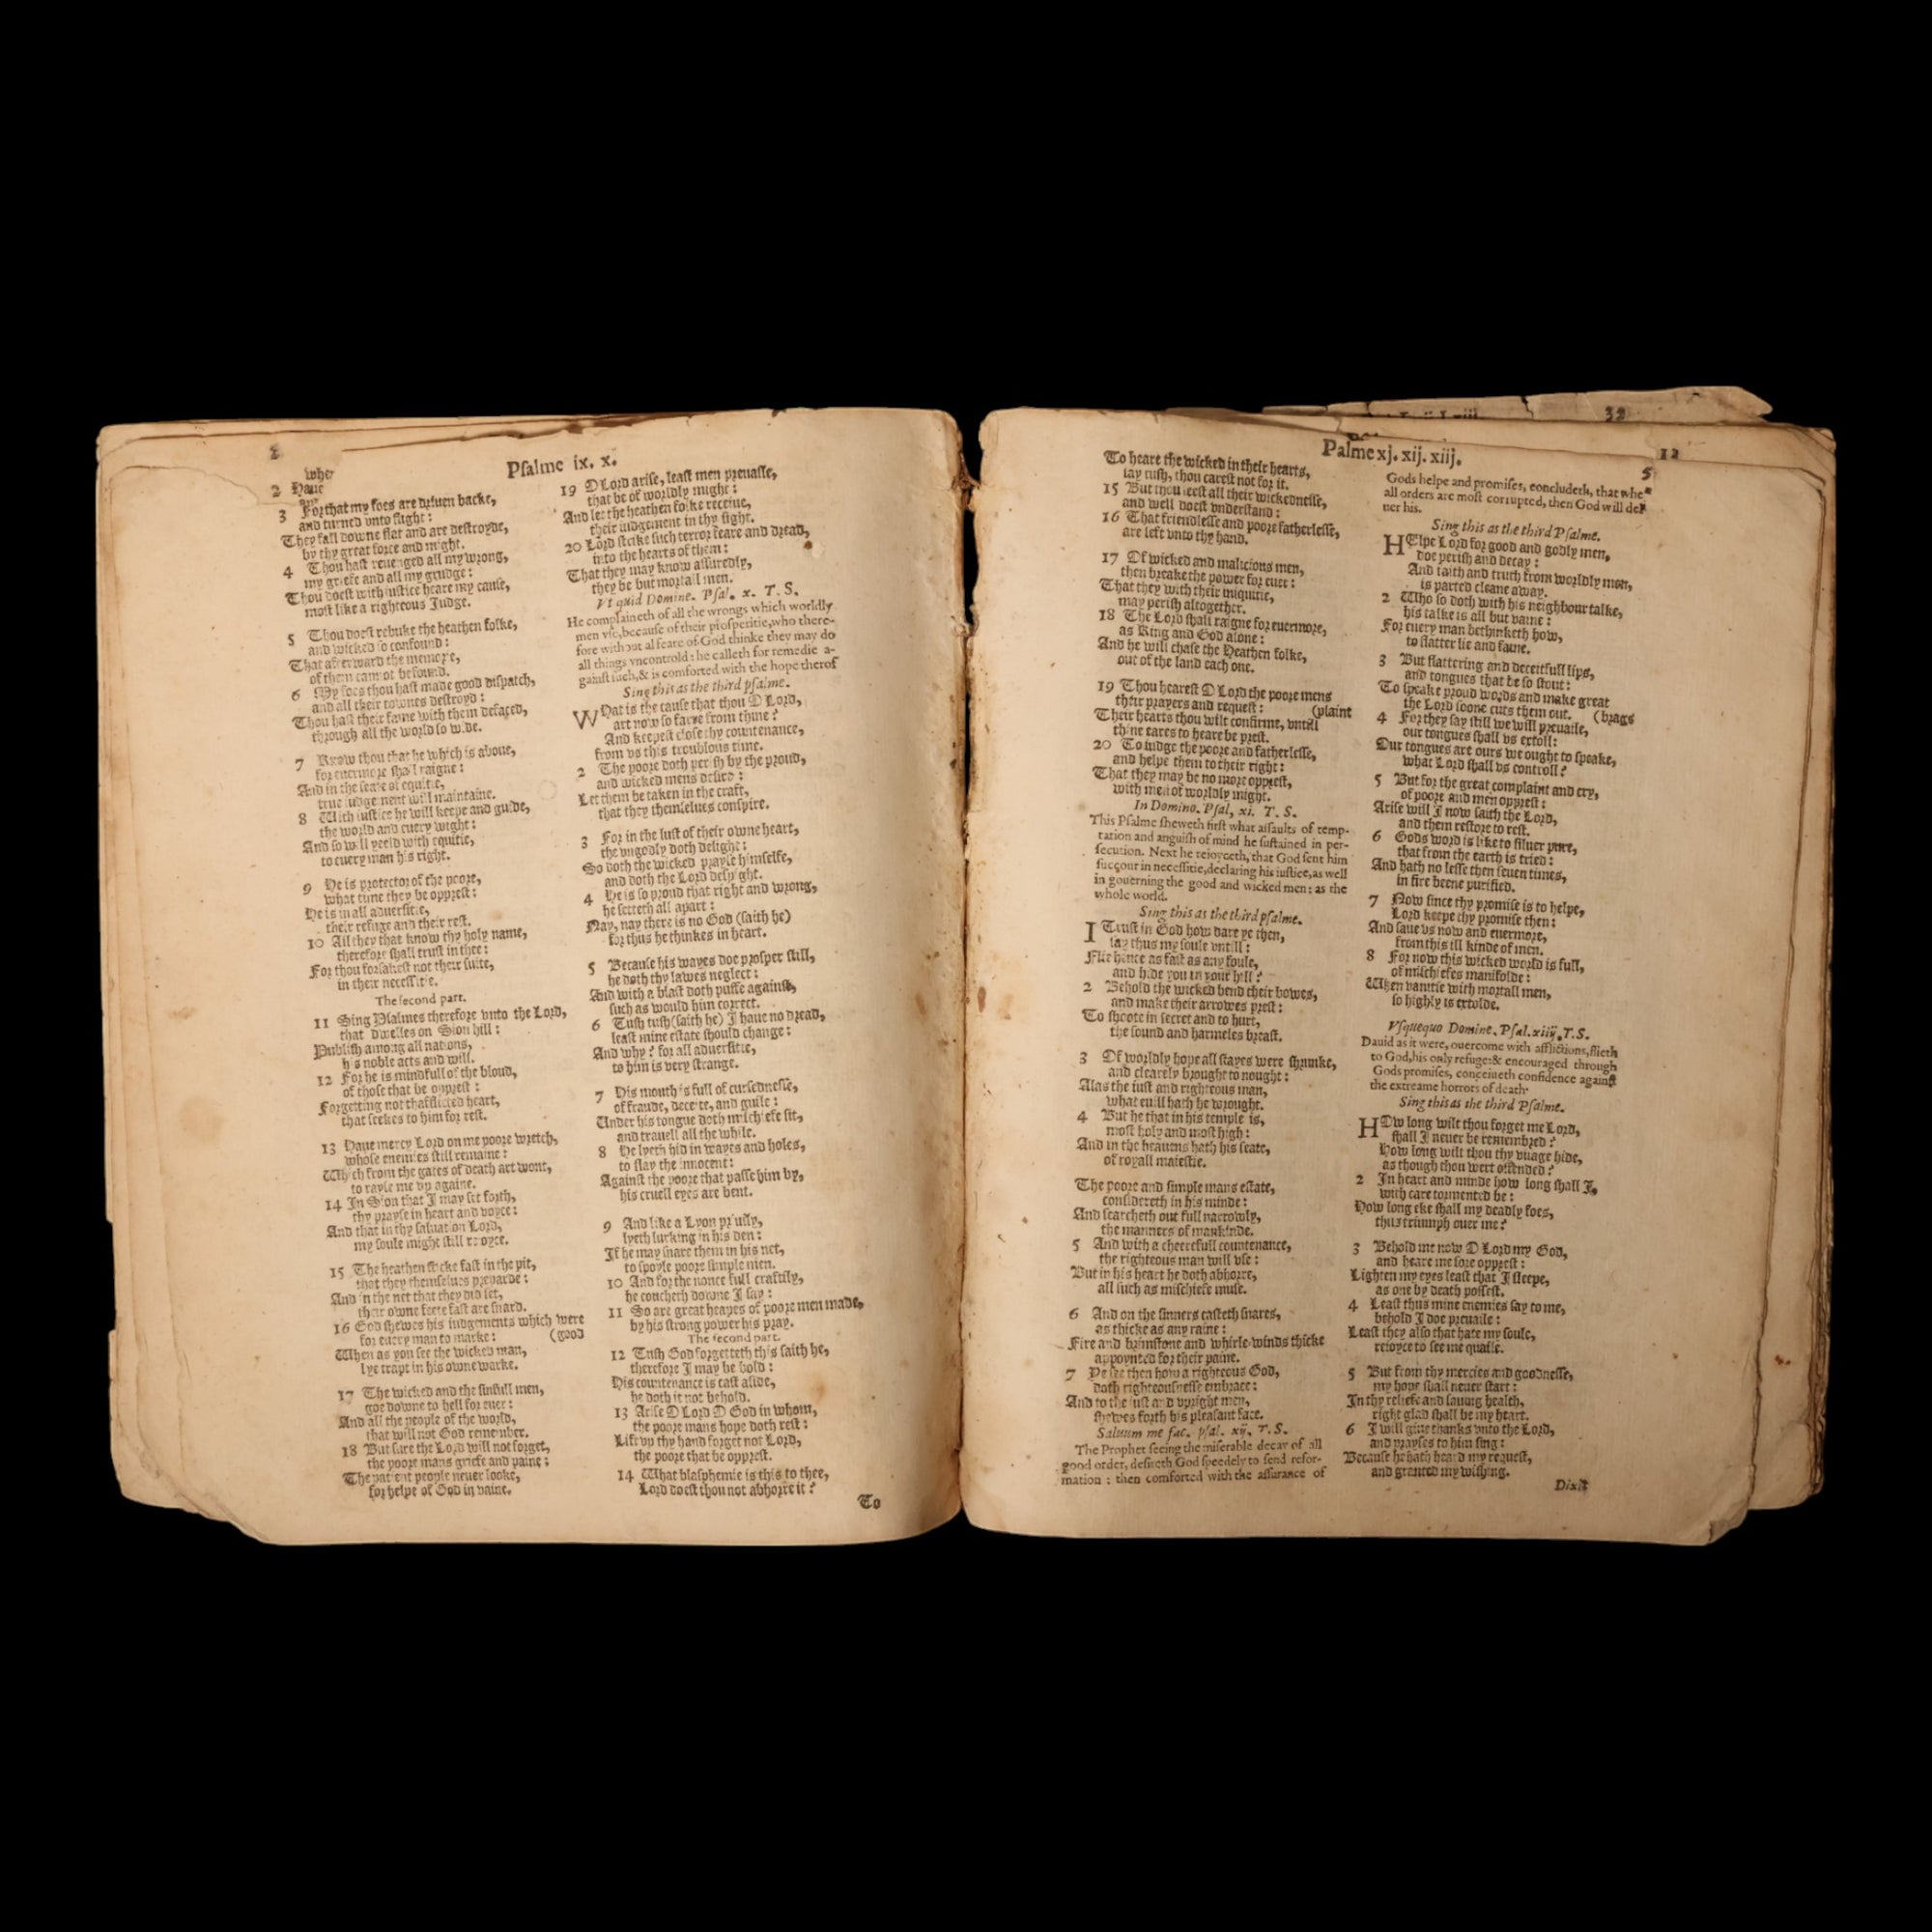 Psalme ix. x.
whe
2 Haue
any
3 For that my foes are driuen backe,
and turned vnto flight:
They fall downe flat and are destroyde,
by thy great force and might.
4 Thou hast reuenged all my wrong,
my griefe and all my grudge:
Thou doest with iustice heare my cause,
most like a righteous Judge.
5 Thou doest rebuke the heathen folke,
and wicked so confound:
That afterward the memorie,
of them cannot be found.
6 My foes thou hast made good dispatch,
and all their townes destroyd:
Thou hast their fame with them defaced,
through all the world so wide.
7 Know thou that he which is aboue,
for euermore shall raigne:
And in the seate of equitie,
true iudgement will maintaine.
8 With iustice he will keepe and guide,
the world and euery wight:
And so will yeeld with equitie,
to euery man his right.
9 He is protector of the poore,
what time they be opprest:
He is in all aduersitie,
their refuge and their rest.
10 All they that know thy holy name,
therefore shall trust in thee:
For thou forsakest not their suite,
in their necessitie.
The second part.
11 Sing Psalmes therefore vnto the Lord,
that dwelles on Sion hill:
Publish among all nations,
his noble acts and will.
12 For he is mindfull of the bloud,
of those that be opprest:
Forgetting not thafflicted heart,
that seekes to him for rest.
13 Haue mercy Lord on me poore wretch,
whose enemies still remaine:
Which from the gates of death art wont,
to rayse me vp againe.
14 In Sion that I may set forth,
thy prayse in heart and voyce:
And that in thy saluation Lord,
my soule might still reioyce.
15 The heathen sticke fast in the pit,
that they themselues preparde:
And in the net that they did set,
their owne feete fast are snard.
16 God shewes his iudgements which were
for euery man to marke: (good
When as you see the wicked man,
lye trapt in his owne warke.
17 The wicked and the sinfull men,
goe downe to hell for euer:
And all the people of the world,
that will not God remember.
18 But sure the Lord will not forget,
the poore mans griefe and paine:
The patient people neuer looke,
for helpe of God in vaine.
19 O Lord arise, least men preuaile,
that be of worldly might:
And let the heathen folke receiue,
their iudgement in thy sight.
20 Lord strike such terror feare and dread,
into the hearts of them:
That they may know assuredly,
they be but mortall men.
Vt quid Domine. Psal. x. T. S.
He complaineth of all the wrongs which worldly
men vse, because of their prosperitie, who there-
fore without al feare of God thinke they may do
all things vncontrold: he calleth for remedie a-
gainst such, & is comforted with the hope therof
Sing this as the third psalme.
WHat is the cause that thou O Lord,
art now so farre from thine?
And keepest close thy countenance,
from vs this troublous time.
2 The poore doth perish by the proud,
and wicked mens desire:
Let them be taken in the craft,
that they themselues conspire.
3 For in the lust of their owne heart,
the vngodly doth delight:
So doth the wicked prayse himselfe,
and doth the Lord despight.
4 He is so proud that right and wrong,
he setteth all apart:
Nay, nay there is no God (saith he)
for thus he thinkes in heart.
5 Because his wayes doe prosper still,
he doth thy lawes neglect:
And with a blast doth puffe against,
such as would him correct.
6 Tush tush (saith he) I haue no dread,
least mine estate should change:
And why? for all aduersitie,
to him is very strange.
7 His mouth is full of cursednesse,
of fraude, deceite, and guile:
Under his tongue doth mischiefe sit,
and trauell all the while.
8 He lyeth hid in wayes and holes,
to slay the innocent:
Against the poore that passe him by,
his cruell eyes are bent.
9 And like a Lyon priuily,
lyeth lurking in his den:
If he may snare them in his net,
to spoyle poore simple men.
10 And for the nonce full craftily,
he coucheth downe I say:
11 So are great heapes of poore men made,
by his strong power his pray.
The second part.
12 Tush God forgetteth this saith he,
therefore I may be bold:
His countenance is cast aside,
he doth it not behold.
13 Arise O Lord O God in whom,
the poore mans hope doth rest:
Lift vp thy hand forget not Lord,
the poore that be opprest.
14 What blasphemie is this to thee,
Lord doest thou not abhorre it?
To
32
12
Palme xj. xij. xiij.
5
To heare the wicked in their hearts,
say tush, thou carest not for it.
15 But thou seest all their wickednesse,
and well doest vnderstand:
16 That friendlesse and poore fatherlesse,
are left vnto thy hand.
17 Of wicked and malicious men,
then breake the power for euer:
That they with their iniquitie,
may perish altogether.
18 The Lord shall raigne for euermore,
as King and God alone:
And he will chase the Heathen folke,
out of the land each one.
19 Thou hearest O Lord the poore mens
their prayers and request: (plaint
Their hearts thou wilt confirme, vntill
thine eares to heare be prest.
20 To iudge the poore and fatherlesse,
and helpe them to their right:
That they may be no more opprest,
with men of worldly might.
In Domino. Psal, xi. T. S.
This Psalme sheweth first what assaults of temp-
tation and anguish of mind he sustained in per-
secution. Next he reioyceth, that God sent him
succour in necessitie, declaring his iustice, as well
in gouerning the good and wicked men: as the
whole world.
Sing this as the third psalme.
I Trust in God how dare ye then,
say thus my soule vntill:
Flie hence as fast as any foule,
and hide you in your hill?
2 Behold the wicked bend their bowes,
and make their arrowes prest:
To shoote in secret and to hurt,
the sound and harmeles breast.
3 Of worldly hope all stayes were shrunke,
and clearely brought to nought:
Alas the iust and righteous man,
what euill hath he wrought.
4 But he that in his temple is,
most holy and most high:
And in the heauens hath his seate,
of royall maiestie.
The poore and simple mans estate,
considereth in his minde:
And searcheth out full narrowly,
the manners of mankinde.
5 And with a cheerefull countenance,
the righteous man will vse:
But in his heart he doth abhorre,
all such as mischiefe muse.
6 And on the sinners casteth snares,
as thicke as any raine:
Fire and brimstone and whirle-winds thicke
appoynted for their paine.
7 Ye see then how a righteous God,
doth righteousnesse embrace:
And to the iust and vpright men,
shewes forth his pleasant face.
Saluum me fac. psal. xij. T. S.
The Prophet seeing the miserable decay of all
good order, desireth God speedely to send refor-
mation: then comforted with the assurance of
Gods helpe and promises, concludeth, that whe
all orders are most corrupted, then God will del
uer his.
Sing this as the third Psalme.
HElpe Lord for good and godly men,
doe perish and decay:
And faith and truth from worldly men,
is parted cleane away.
2 Who so doth with his neighbour talke,
his talke is all but vaine:
For euery man bethinketh how,
to flatter lie and faine.
3 But flattering and deceitfull lips,
and tongues that be so stout:
To speake proud words and make great
the Lord soone cuts them out. (brags
4 For they say still we will preuaile,
our tongues shall vs extoll:
Our tongues are ours we ought to speake,
what Lord shall vs controll?
5 But for the great complaint and cry,
of poore and men opprest:
Arise will I now saith the Lord,
and them restore to rest.
6 Gods word is like to siluer pure,
that from the earth is tried:
And hath no lesse then seuen times,
in fire beene purified.
7 Now since thy promise is to helpe,
Lord keepe thy promise then:
And saue vs now and euermore,
from this ill kinde of men.
8 For now this wicked world is full,
of mischiefes manifolde:
When vanitie with mortall men,
so highly is extolde.
Vsquequo Domine. Psal. xiij. T. S.
Dauid as it were, ouercome with afflictions, flieth
to God, his only refuge: & encouraged through
Gods promises, conceiueth confidence against
the extreame horrors of death
Sing this as the third Psalme.
HOw long wilt thou forget me Lord,
shall I neuer be remembred?
How long wilt thou thy visage hide,
as though thou wert offended?
2 In heart and minde how long shall I,
with care tormented be:
How long eke shall my deadly foes,
thus triumph ouer me?
3 Behold me now O Lord my God,
and heare me sore opprest:
Lighten my eyes least that I sleepe,
as one by death possest.
4 Least thus mine enemies say to me,
behold I doe preuaile:
Least they also that hate my soule,
reioyce to see me quaile.
5 But from thy mercies and goodnesse,
my hope shall neuer start:
In thy reliefe and sauing health,
right glad shall be my heart.
6 I will giue thanks vnto the Lord,
and prayses to him sing:
Because he hath heard my request,
and granted my wishing.
Dixit